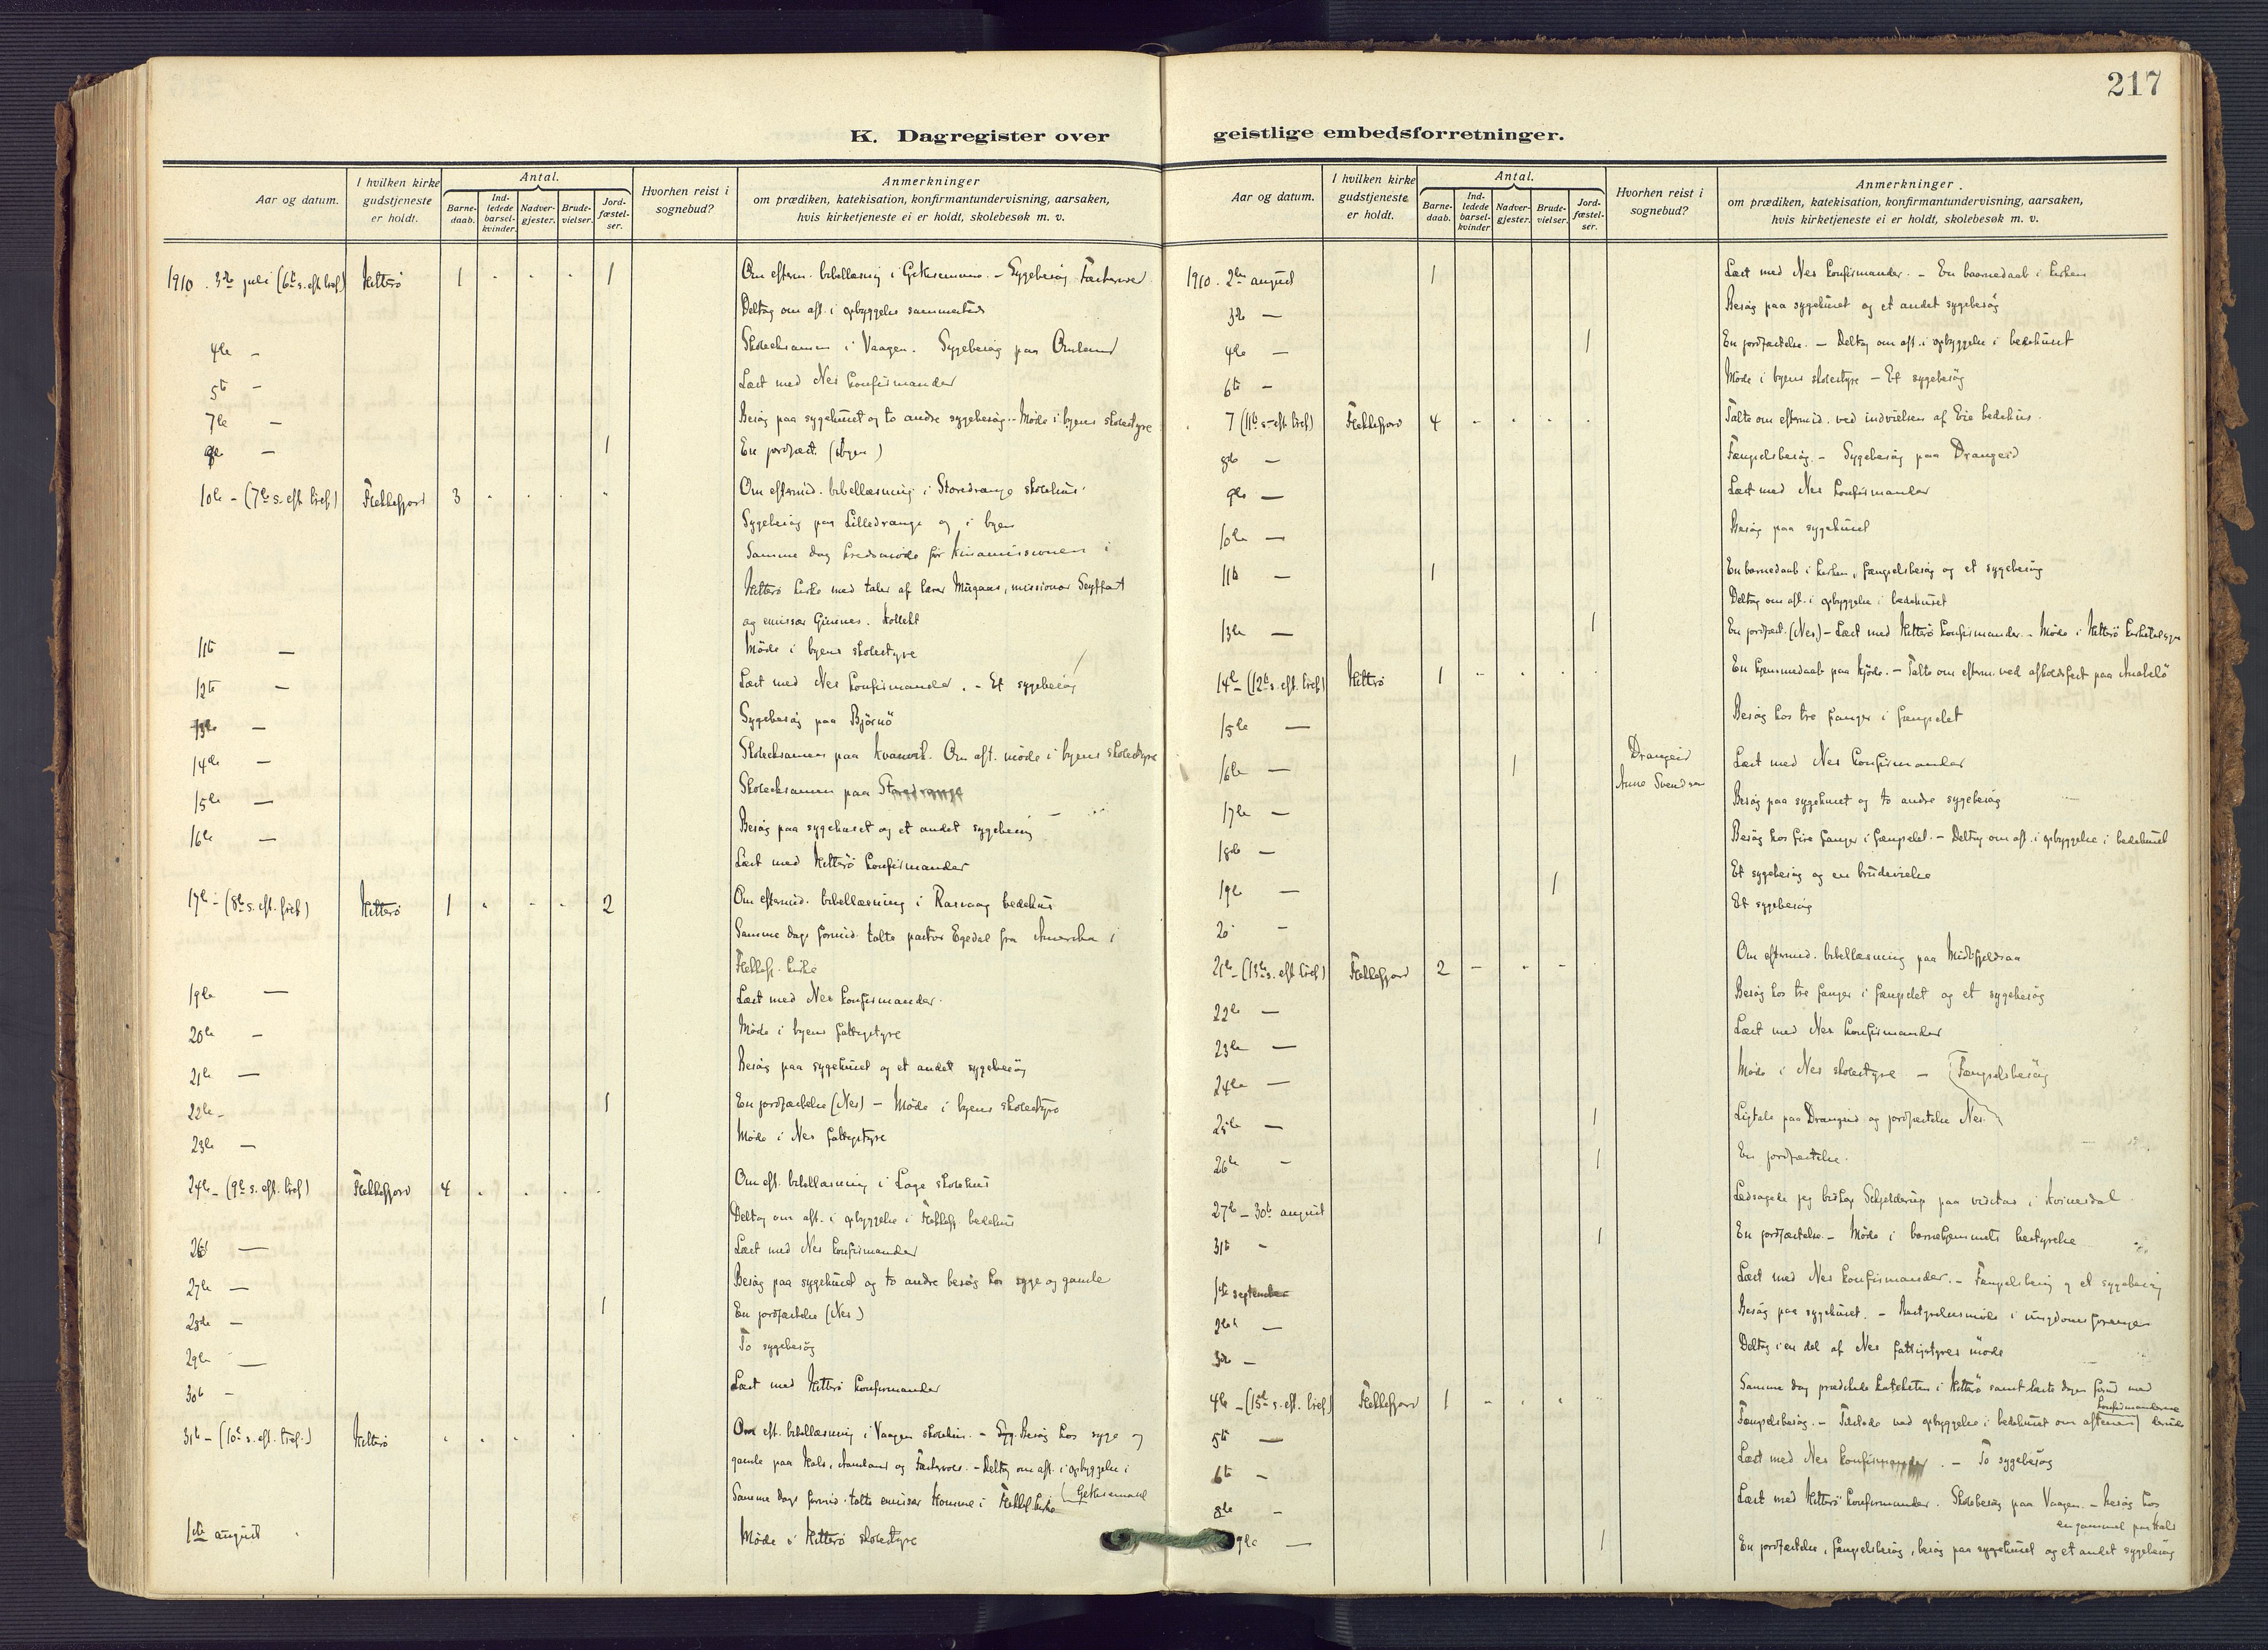 217
K. Dagregister over geistlige embedsforretninger.
Aar og datum.
I hvilken kirke gudstjeneste er holdt.
Antal.
Barne-daab.
Ind-ledede barsel-kvinder.
Nadver-gjester.
Brude-vielser.
Jord-fæstel-ser.
Hvorhen reist i sognebud?
Anmerkninger
om prædiken, katekisation, konfirmantundervisning, aarsaken,
hvis kirketjeneste ei er holdt, skolebesøk m. v.
1910. 3die juli (6te s. eft. tref.) Hitterö 1 - - - 1 Om efterm. bibellæsning i Gethsemane. - Sygebesög
Deltog om aft. i opbyggelse sammesteds
4de - Skoleeksamen i Vaagen. Sygebesög paa
5te - Læst med Nes konfirmander
7de - Besög paa sygehuset og to andre sygebesög. - Möde i byens skolestyre
9de - 1 En jordfæst. (byen)
10de - (7de s. eft. tref.) Flekkefjord 3 - - - - Om eftermid. bibellæsning i Storedrange skolehus
Sygebesög paa Lilledrange og i byen
Samme dag kredsmöde for Kinamissionen i
Hitterö kirke med taler af lærer Mugaas, missionær Seyffart
og emissær . Kollekt
11te - Möde i byens skolestyre
12te - Læst med Nes konfirmander. - Et sygebesög
13de - Sygebesög paa Björnö
14de - Skoleeksamen paa Kvanvik. Om aft. möde i byens skolestyre
15de - Skoleeksamen paa Storedrange
16de - Besög paa sygehuset og et andet sygebesög
Læst med Hitterö konfirmander
17de - (8de s. eft. tref.) Hitterö 1 - - - 2 Om eftermid. bibellæsning i Rasvaag bedehus
Samme dags formid. talte pastor Egedal fra Amerika i
Flekkefj. kirke
19de - Læst med Nes konfirmander.
20de - Möde i byens fattigstyre
21de - Besög paa sygehuset og et andet sygebesög
22de - 1 En jordfæstelse (Nes) - Möde i byens skolestyre
23de - Möde i Nes fattigstyre
24de - (9de s. eft. tref.) Flekkefjord 4 - - - - Om eft. bibellæsning i Loge skolehus
Deltog om aft. i opbyggelse i Flekkefj. bedehus
26de - Læst med Nes konfirmander
27de - Besög paa sygehuset og to andre besög hos syge og gamle
28de - 1 En jordfæstelse (Nes)
29de - To sygebesög
30te - Læst med Hitterö konfirmander
31te - (10de s. eft. tref.) Hitterö - - - - Om eft. bibellæsning i Vaagen skolehus. - Besög hos syge og
gamle paa og . - Deltog om aft. i opbyggelse i
Gethsemane
Samme dags formid. talte emissær Homme i Flekkefj. kirke
1ste august Möde i Hitterö skolestyre
Aar og datum.
I hvilken kirke gudstjeneste er holdt.
Antal.
Barne-daab.
Ind-ledede barsel-kvinder
Nadver-gjester.
Brude-vielser.
Jord-fæstel-ser.
Hvorhen reist i sognebud?
Anmerkninger.
om prædiken, katekisation, konfirmantundervisning, aarsaken,
hvis kirketjeneste ei er holdt, skolebesøk m. v.
1910. 2den august 1 Læst med Nes konfirmander. - En barnedaab i kirken
3die - Besög paa sygehuset og et andet sygebesög
4de - 1 En jordfæstelse. - Deltog om aft. i opbyggelse i bedehuset
6te - Möde i byens skolestyre - Et sygebesög
7 (11te s. eft. tref.) Flekkefjord 4 - - - - Talte om eftermid. ved indvielsen af Eie bedehus.
8de - Fængselsbesög. - Sygebesög paa Drangeid
9de - Læst med Nes konfirmander
10de - Besög paa sygehuset
11te - 1 En barnedaab i kirken, fængselsbesög og et sygebesög
Deltog om aft. i opbyggelse i bedehuset
13de - 1 En jordfæst. (Nes) - Læst med Hitterö konfirmander. - Möde i Hitterö
14de - (12te s. eft. tref.) Hitterö 1 - - - - En hjemmedaab paa Kjöde. - Talte om efterm. ved afholdsfest paa Anabelö
15de - Besög hos tre fanger i fængselet
16de - 1 Drangeid Anne Svendsen Læst med Nes konfirmander
17de - Besög paa sygehuset og to andre sygebesög
18de - Besög hos fire fanger i fængselet. - Deltog om aft. i opbyggelse i bedehuset
19de - 1 Et sygebesög og en brudevielse
20 - Et sygebesög
21de - (13de s. eft. tref.) Flekkefjord 2 - - - - Om eftermid. bibellæsning paa Midtfjeldsaa
22de - Besög hos tre fanger i fængslet og et sygebesög
23de - Læst med Nes konfirmander
24de - Möde i Nes skolestyre - Fængselsbesög
25de - 1 Ligtale paa Drangeid og jordfæstelse Nes
26de - 1 En jordfæstelse.
27de - 30te august Ledsagede jeg biskop Schjelderup paa visitas i Kvinesdal
31te - 1 En jordfæstelse. - Möde i barnehjemmets bestyrelse
1ste september Læst med Nes konfirmander. - Fængselsbesög og et sygebesög
2den - Besög paa sygehuset. - Bestyrelsesmöde i ungdomsforeningen
3die - Deltog i en del af Nes fattigstyres möde
Samme dag prædikede kateketen i Hitterö samt læste dagen forud med
konfirmanderne
4de - (15de s. eft. tref.) Flekkefjord 1 - - - Fængselsbesög. - ved opbyggelse i bedehuset om aftenen
5te -
6te - Læst med Nes konfirmander. - To sygebesög
8de - Læst med Hitterö konfirmander. Skolebesög paa Vaagen. - Besög hos
en gammel paa
9de - 1 En jordfæstelse, fængselsbesög, besög paa sygehuset og et andet sygebesög